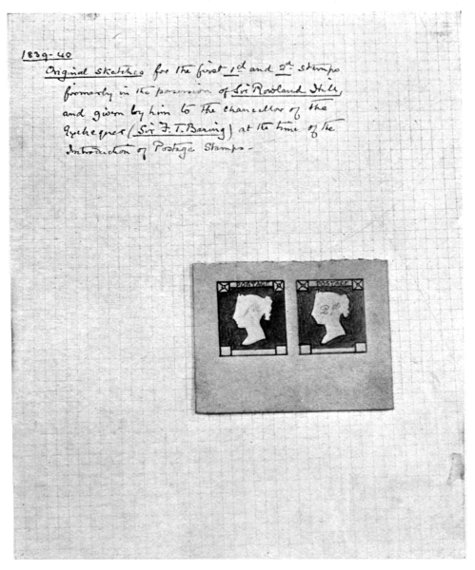 1839-40
Original Sketches for the first 1d and 2d Stamps
formerly in the possession of Sir Rowland Hill,
and given by him to the Chancellor of the
Exchequer (Sir F. T. Baring) at the time of the
Introduction of Postage Stamps-
POSTAGE POSTAGE
2d